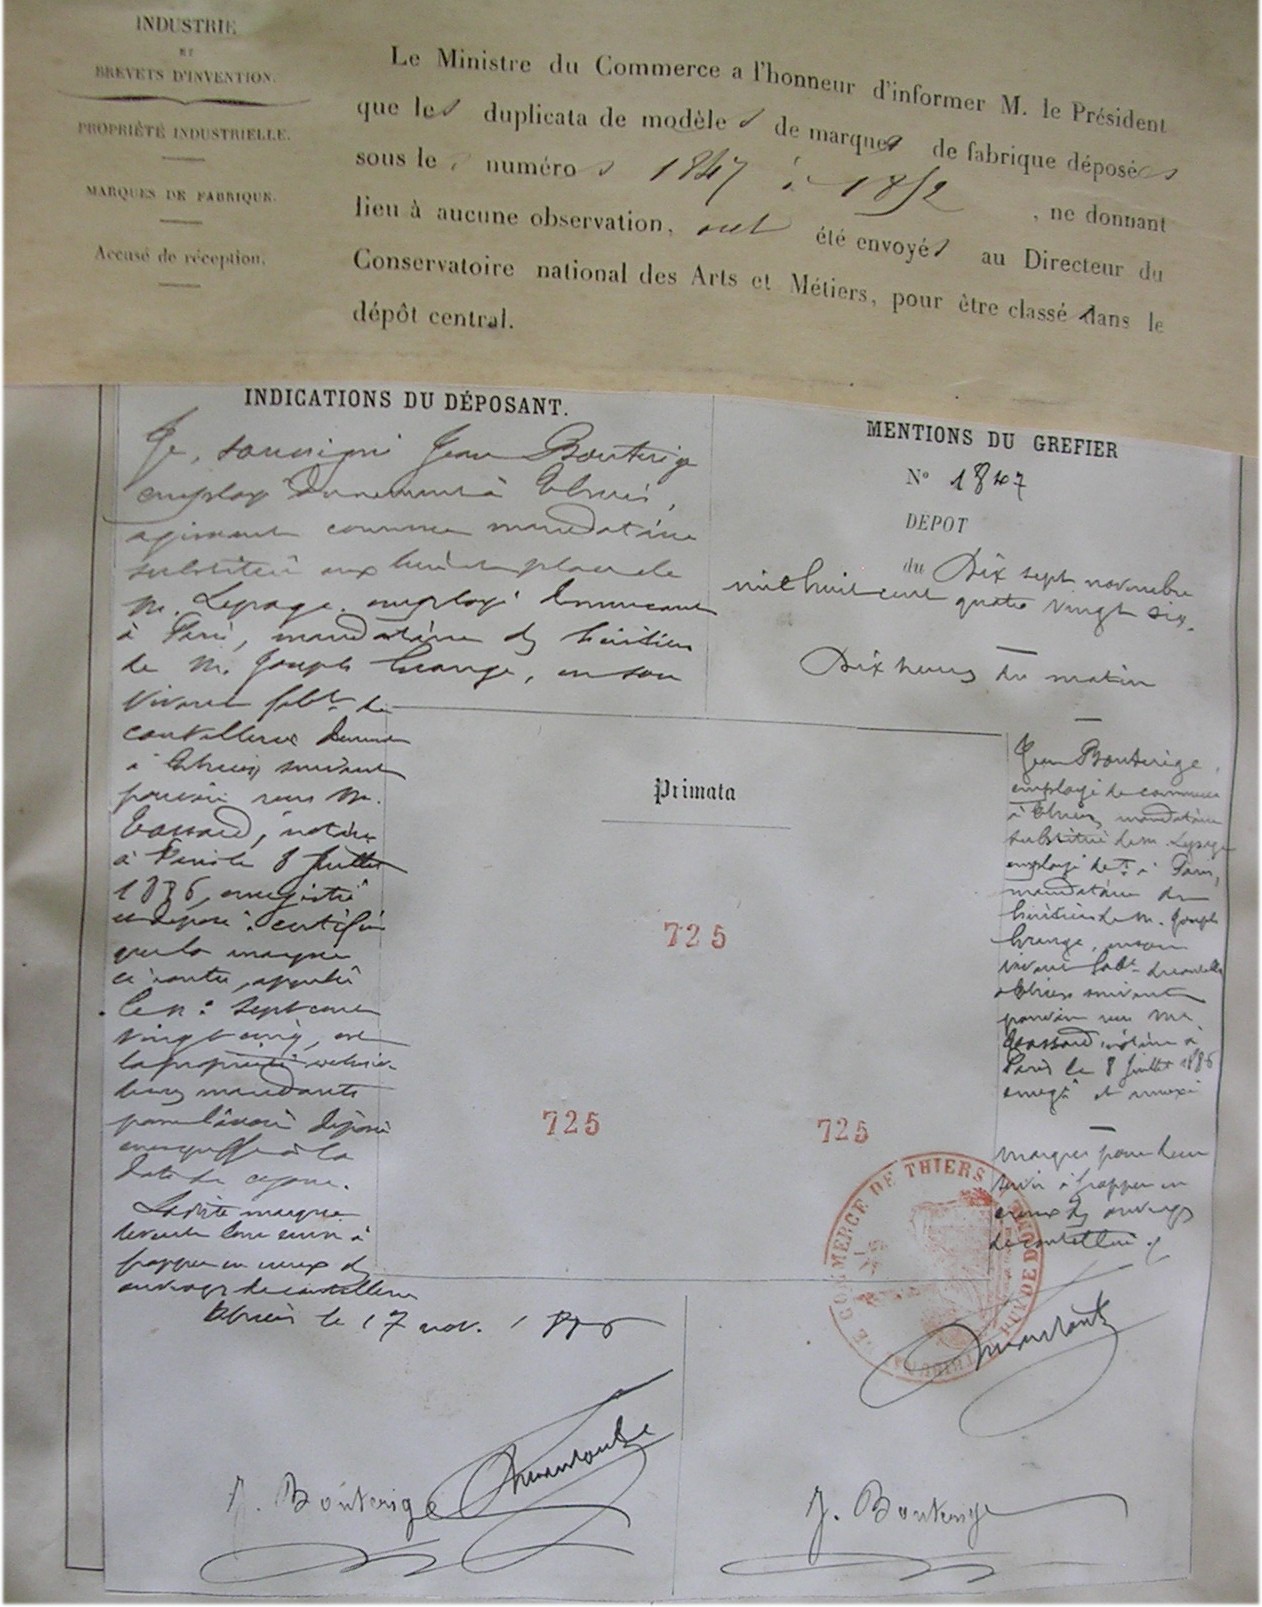 INDUSTRIE
ET
BREVETS D'INVENTION.
PROPRIÉTÉ INDUSTRIELLE.
MARQUES DE FABRIQUE.
Accusé de réception.
Le Ministre du Commerce a l'honneur d'informer M. le Président
que les duplicata de modèles de marques de fabrique déposés
sous les numéros 1847 à 1852, ne donnant
lieu à aucune observation, ont été envoyés au Directeur du
Conservatoire national des Arts et Métiers, pour être classé dans le
dépôt central.
INDICATIONS DU DÉPOSANT.
Je, soussigné Jean Bouterige
employé demeurant à Thiers,
agissant comme mandataire
substitué aux lieu et place de
M. Lepage employé demeurant
à Paris, mandataire des héritiers
de M. Joseph Grange, en son
vivant fabt. de
coutellerie demt
à Thiers suivant
pouvoir reçu Me.
notaire
à Paris le 8 Juillet
1886, enregistré
et déposé, certifie
que la marque
ci contre, appelée
le no: sept cent
vingt cinq, est
la propriété
mandants
pour l'avoir déposé
au greffe à la
date de ce jour.
Ladite marque
devant leur servir à
frapper en creux des
ouvrages de coutellerie
Thiers le 17 nov. 1886
J. Bouterige
MENTIONS DU GREFIER
No 1847
DÉPOT
du Dix sept novembre
mil huit cent quatre vingt six.
Dix heures du matin
Primata
725
725 725
Jean Bouterige,
employé de commerce
à Thiers, mandataire
substitué de M. Lepage
employé de ct. à Paris,
mandataire des
héritiers de M. Joseph
Grange, en son
vivant fabt. de coutellerie
à Thiers suivant
pouvoir reçu Me
notaire à
Paris le 8 Juillet 1886
enregé et annexé
marque pour leur
servir à frapper en
creux des ouvrages
de coutellerie.
DE COMMERCE DE THIERS
PUY DE DÔME
TRIBUNAL
J. Bouterige